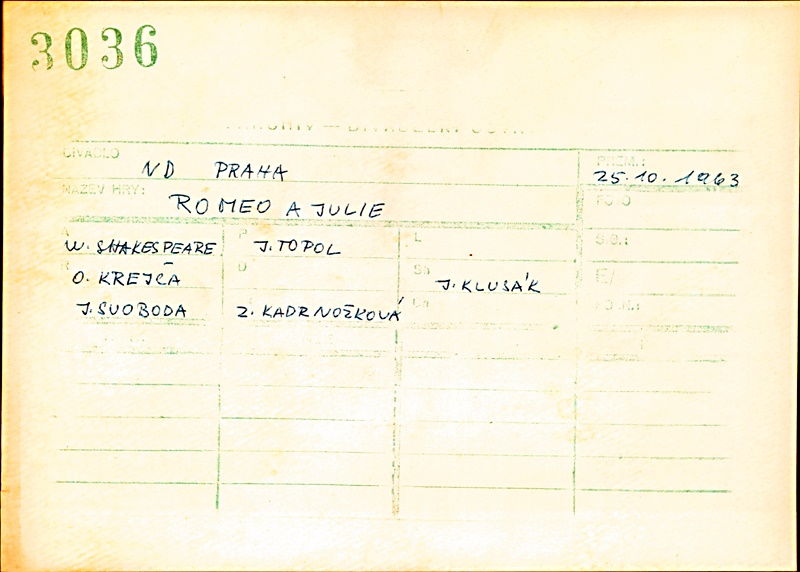 3036
DIVADLO
ND PRAHA
PREM.:
25.10.1963
NÁZEV HRY:
ROMEO A JULIE
A W. SHAKESPEARE P J. TOPOL L S.G.:
R O. KREJČA D Sh J. KLUSÁK
J. SVOBODA Z. KADRNOŽKOVÁ